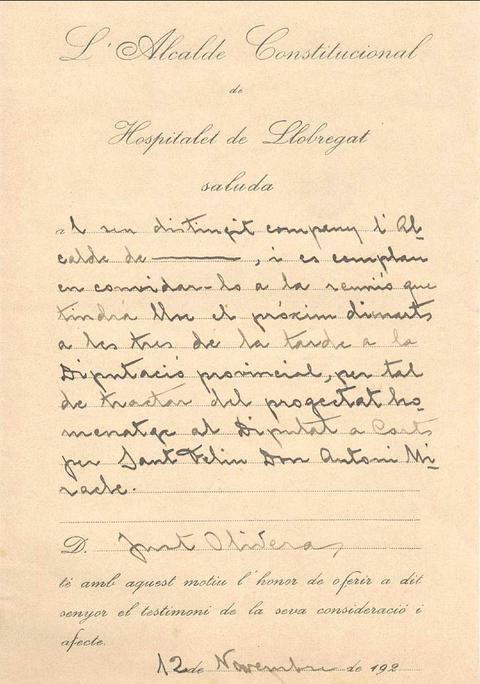 L'Alcalde Constitucional
de
Hospitalet de Llobregat
saluda
al seu distingit company l'Al-
calde de ———, i es complau
en convidar-lo a la reunió que
tindrà lloc el próxim dimarts
a les tres de la tarde a la
Diputació provincial, per tal
de tractar del progectat ho-
menatge al Diputat a Corts
per Sant Feliu Don Antoni Mi-
racle.
D. Just Oliveras,
té amb aquest motiu l'honor de oferir a dit
senyor el testimoni de la seva consideració i
afecte.
12 de Novembre de 192